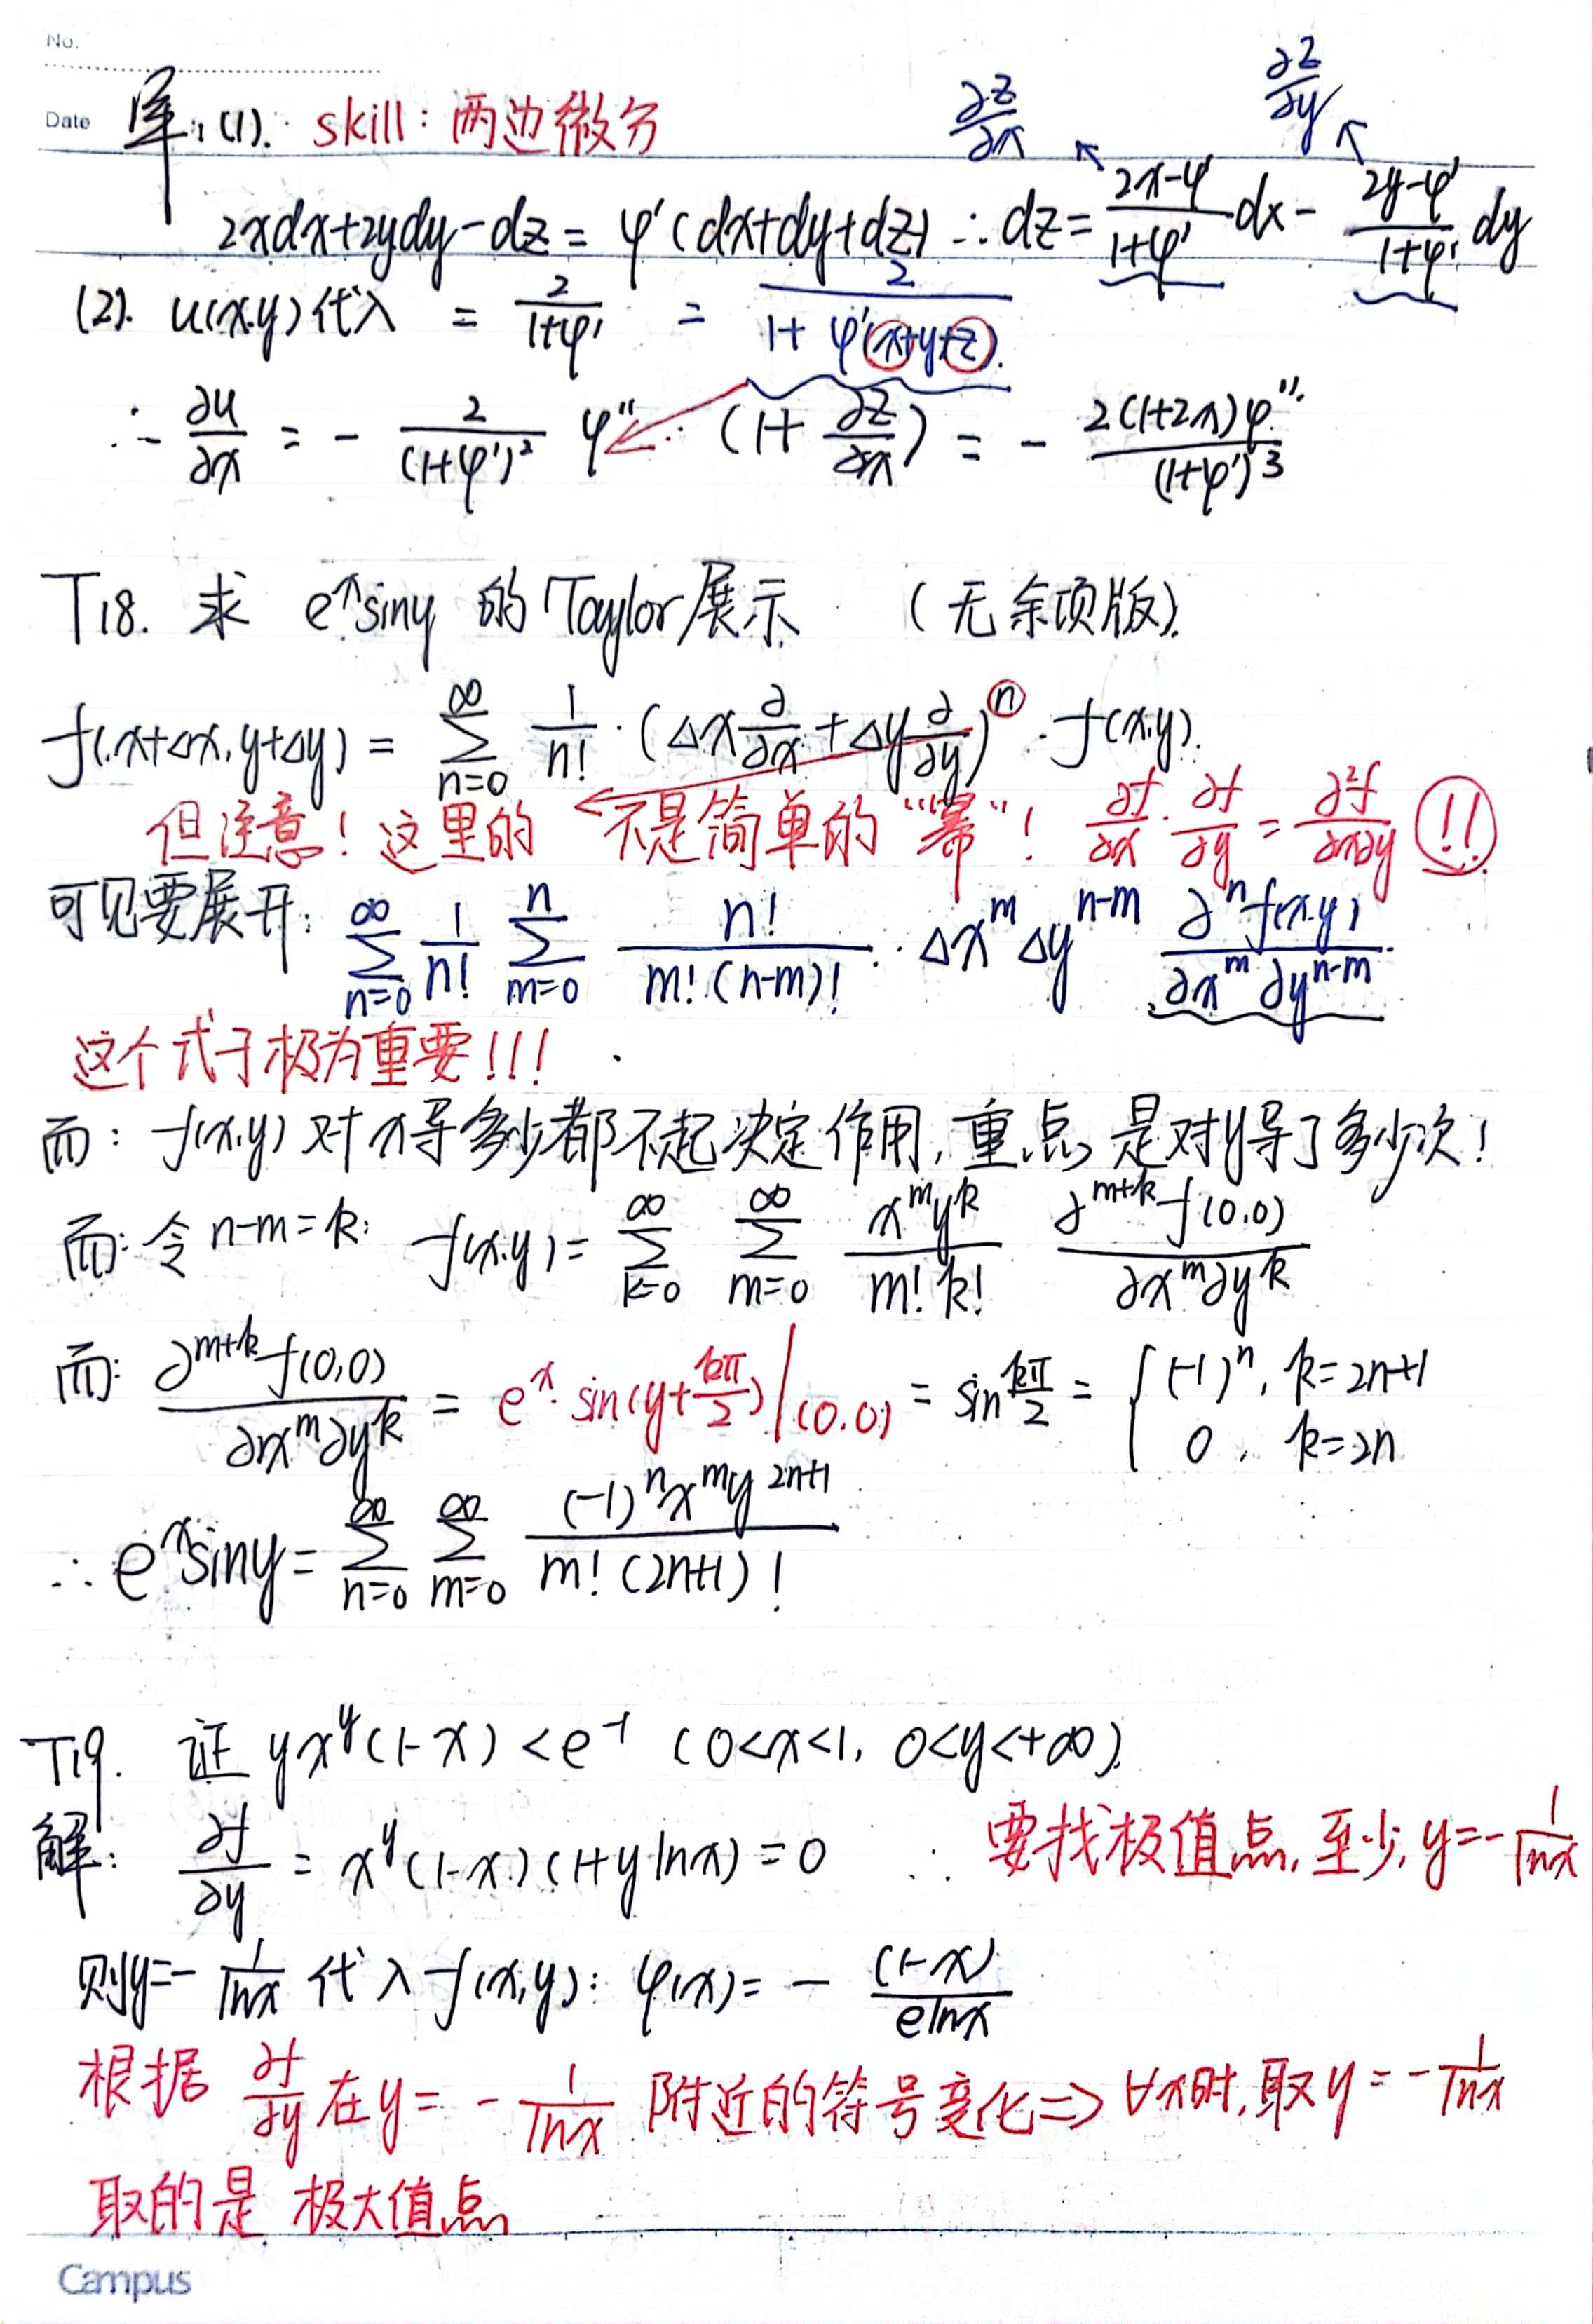 No.
Date
解:(1). skill: 两边微分 ∂z/∂x ↖ ∂z/∂y ↖
2xdx+2ydy-dz = φ'(dx+dy+dz) ∴ dz = (2x-φ')/(1+φ') dx - (2y-φ')/(1+φ') dy
(2). u(x,y)代入 = 2/(1+φ') = 2/(1+φ'(x+y+z)).
∴ ∂u/∂x = - 2/(1+φ')² φ''·(1+ ∂z/∂x) = - 2(1+2x)φ''/(1+φ')³
T18. 求 e^x siny 的 Taylor 展示 (无余项版).
f(x+Δx, y+Δy) = ∑_{n=0}^{∞} 1/n! · (Δx ∂/∂x + Δy ∂/∂y)^n · f(x,y).
但注意! 这里的 ← 不是简单的 "幂"! ∂f/∂x · ∂f/∂y = ∂²f/∂x∂y !!
可见要展开: ∑_{n=0}^{∞} 1/n! ∑_{m=0}^{n} n!/(m!(n-m)!) · Δx^m Δy^{n-m} ∂^n f(x,y)/(∂x^m ∂y^{n-m})
这个式子极为重要!!!
而: f(x,y) 对x导多少都不起决定作用, 重点是对y导了多少次!
而: 令 n-m=k: f(x,y) = ∑_{k=0}^{∞} ∑_{m=0}^{∞} x^m y^k/(m! k!) ∂^{m+k} f(0,0)/(∂x^m ∂y^k)
而: ∂^{m+k} f(0,0)/(∂x^m ∂y^k) = e^x · sin(y+kπ/2)|(0,0) = sin kπ/2 = { (-1)^n, k=2n+1
0, k=2n
∴ e^x siny = ∑_{n=0}^{∞} ∑_{m=0}^{∞} (-1)^n x^m y^{2n+1}/(m!(2n+1)!)
T19. 证 yx^y(1-x) < e^{-1} (0<x<1, 0<y<+∞).
解: ∂f/∂y = x^y(1-x)(1+y lnx) = 0 ∴ 要找极值点, 至少 y = -1/lnx
则y = -1/lnx 代入 f(x,y): φ(x) = - (1-x)/(e lnx)
根据 ∂f/∂y 在 y = -1/lnx 附近的符号变化 ⇒ ∀x时, 取 y = -1/lnx
取的是 极大值点
Campus